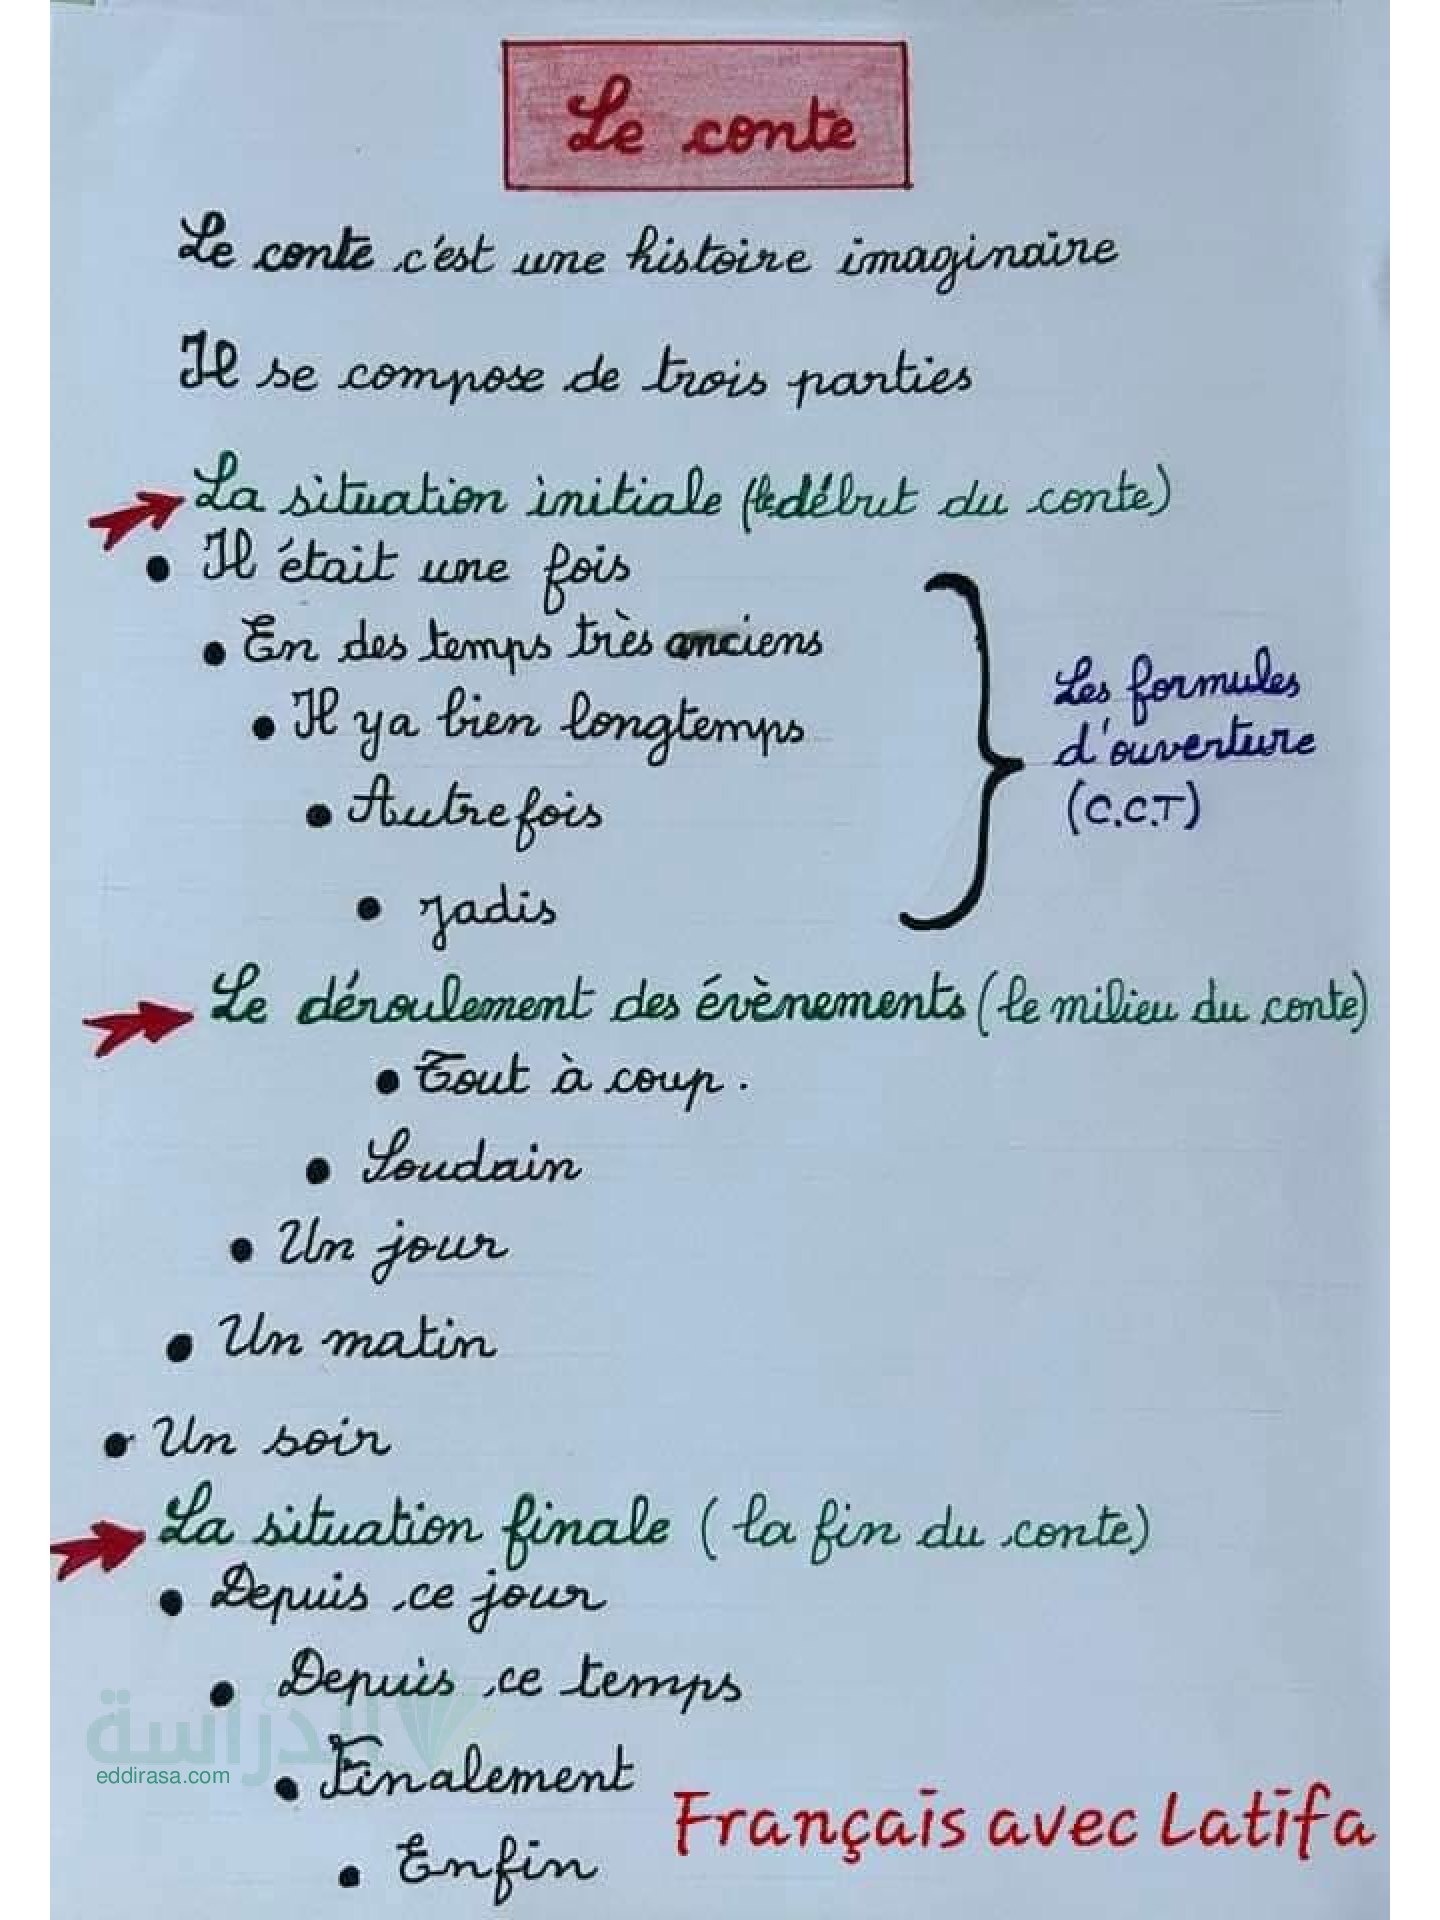 Le conte
Le conte c'est une histoire imaginaire
Il se compose de trois parties
La situation initiale (le début du conte)
• Il était une fois
• En des temps très anciens
• Il ya bien longtemps
• Autrefois
• Jadis
Les formules
d'ouverture
(C.C.T)
Le déroulement des évènements (le milieu du conte)
• Tout à coup.
• Soudain
• Un jour
• Un matin
• Un soir
La situation finale (la fin du conte)
• Depuis ce jour
• Depuis ce temps
• Finalement
• Enfin
الدراسة
eddirasa.com
Français avec Latifa